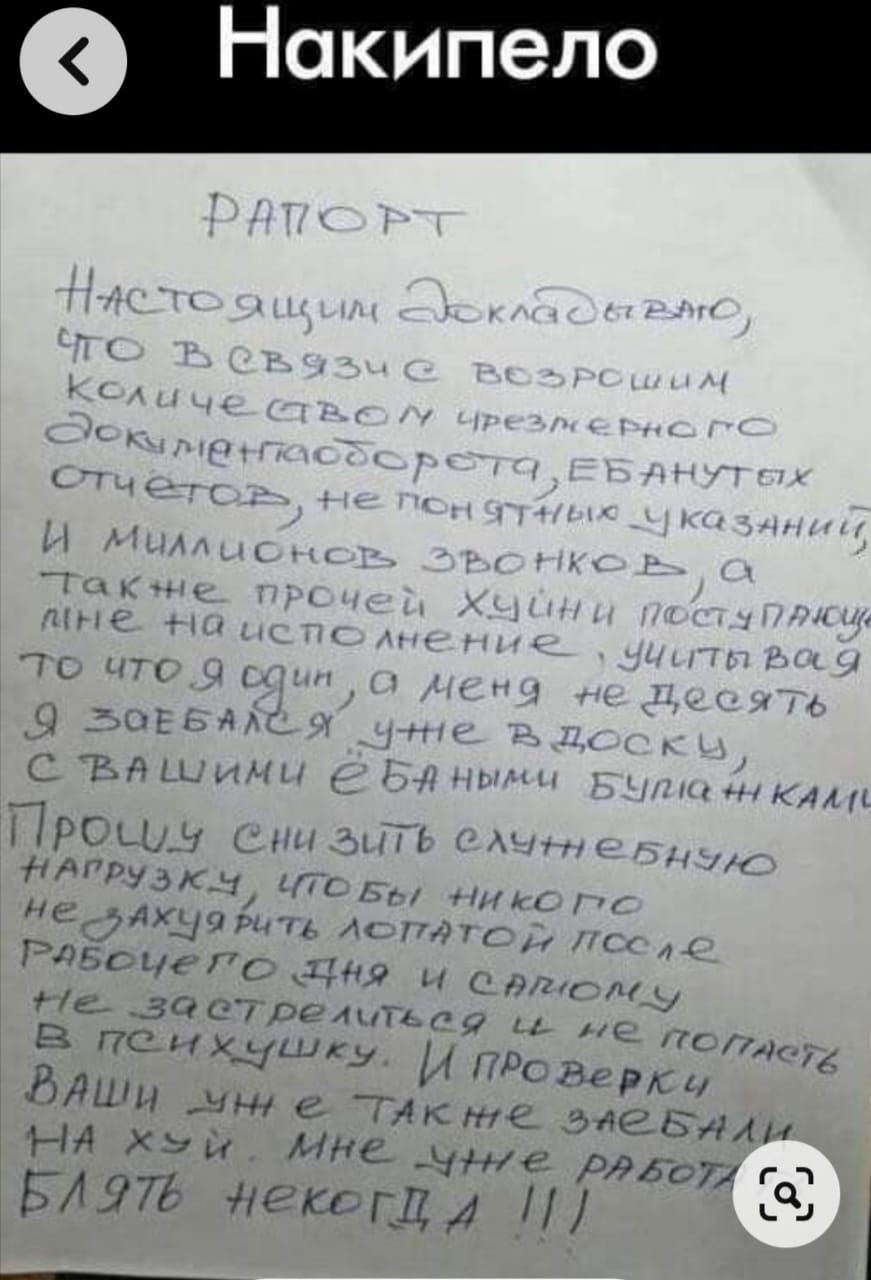 Накипело
РАПОРТ
Настоящим докладываю,
что в связи с возрошим
количеством чрезмерного
документаоборота, ебанутых
отчётов, не понятных указаний,
и миллионов звонков, а
также прочей хуйни поступающ
мне на исполнение, учитывая
то что я один, а меня не десять
я заебался уже в доску,
с вашими ёбаными бумажками
Прошу снизить служебную
нагрузку, чтобы никого
не захуярить лопатой после
рабочего дня и самому
не застрелиться и не попасть
в психушку. И проверки
ваши уже также заебали
на хуй. Мне уже работа
блять некогда !!!